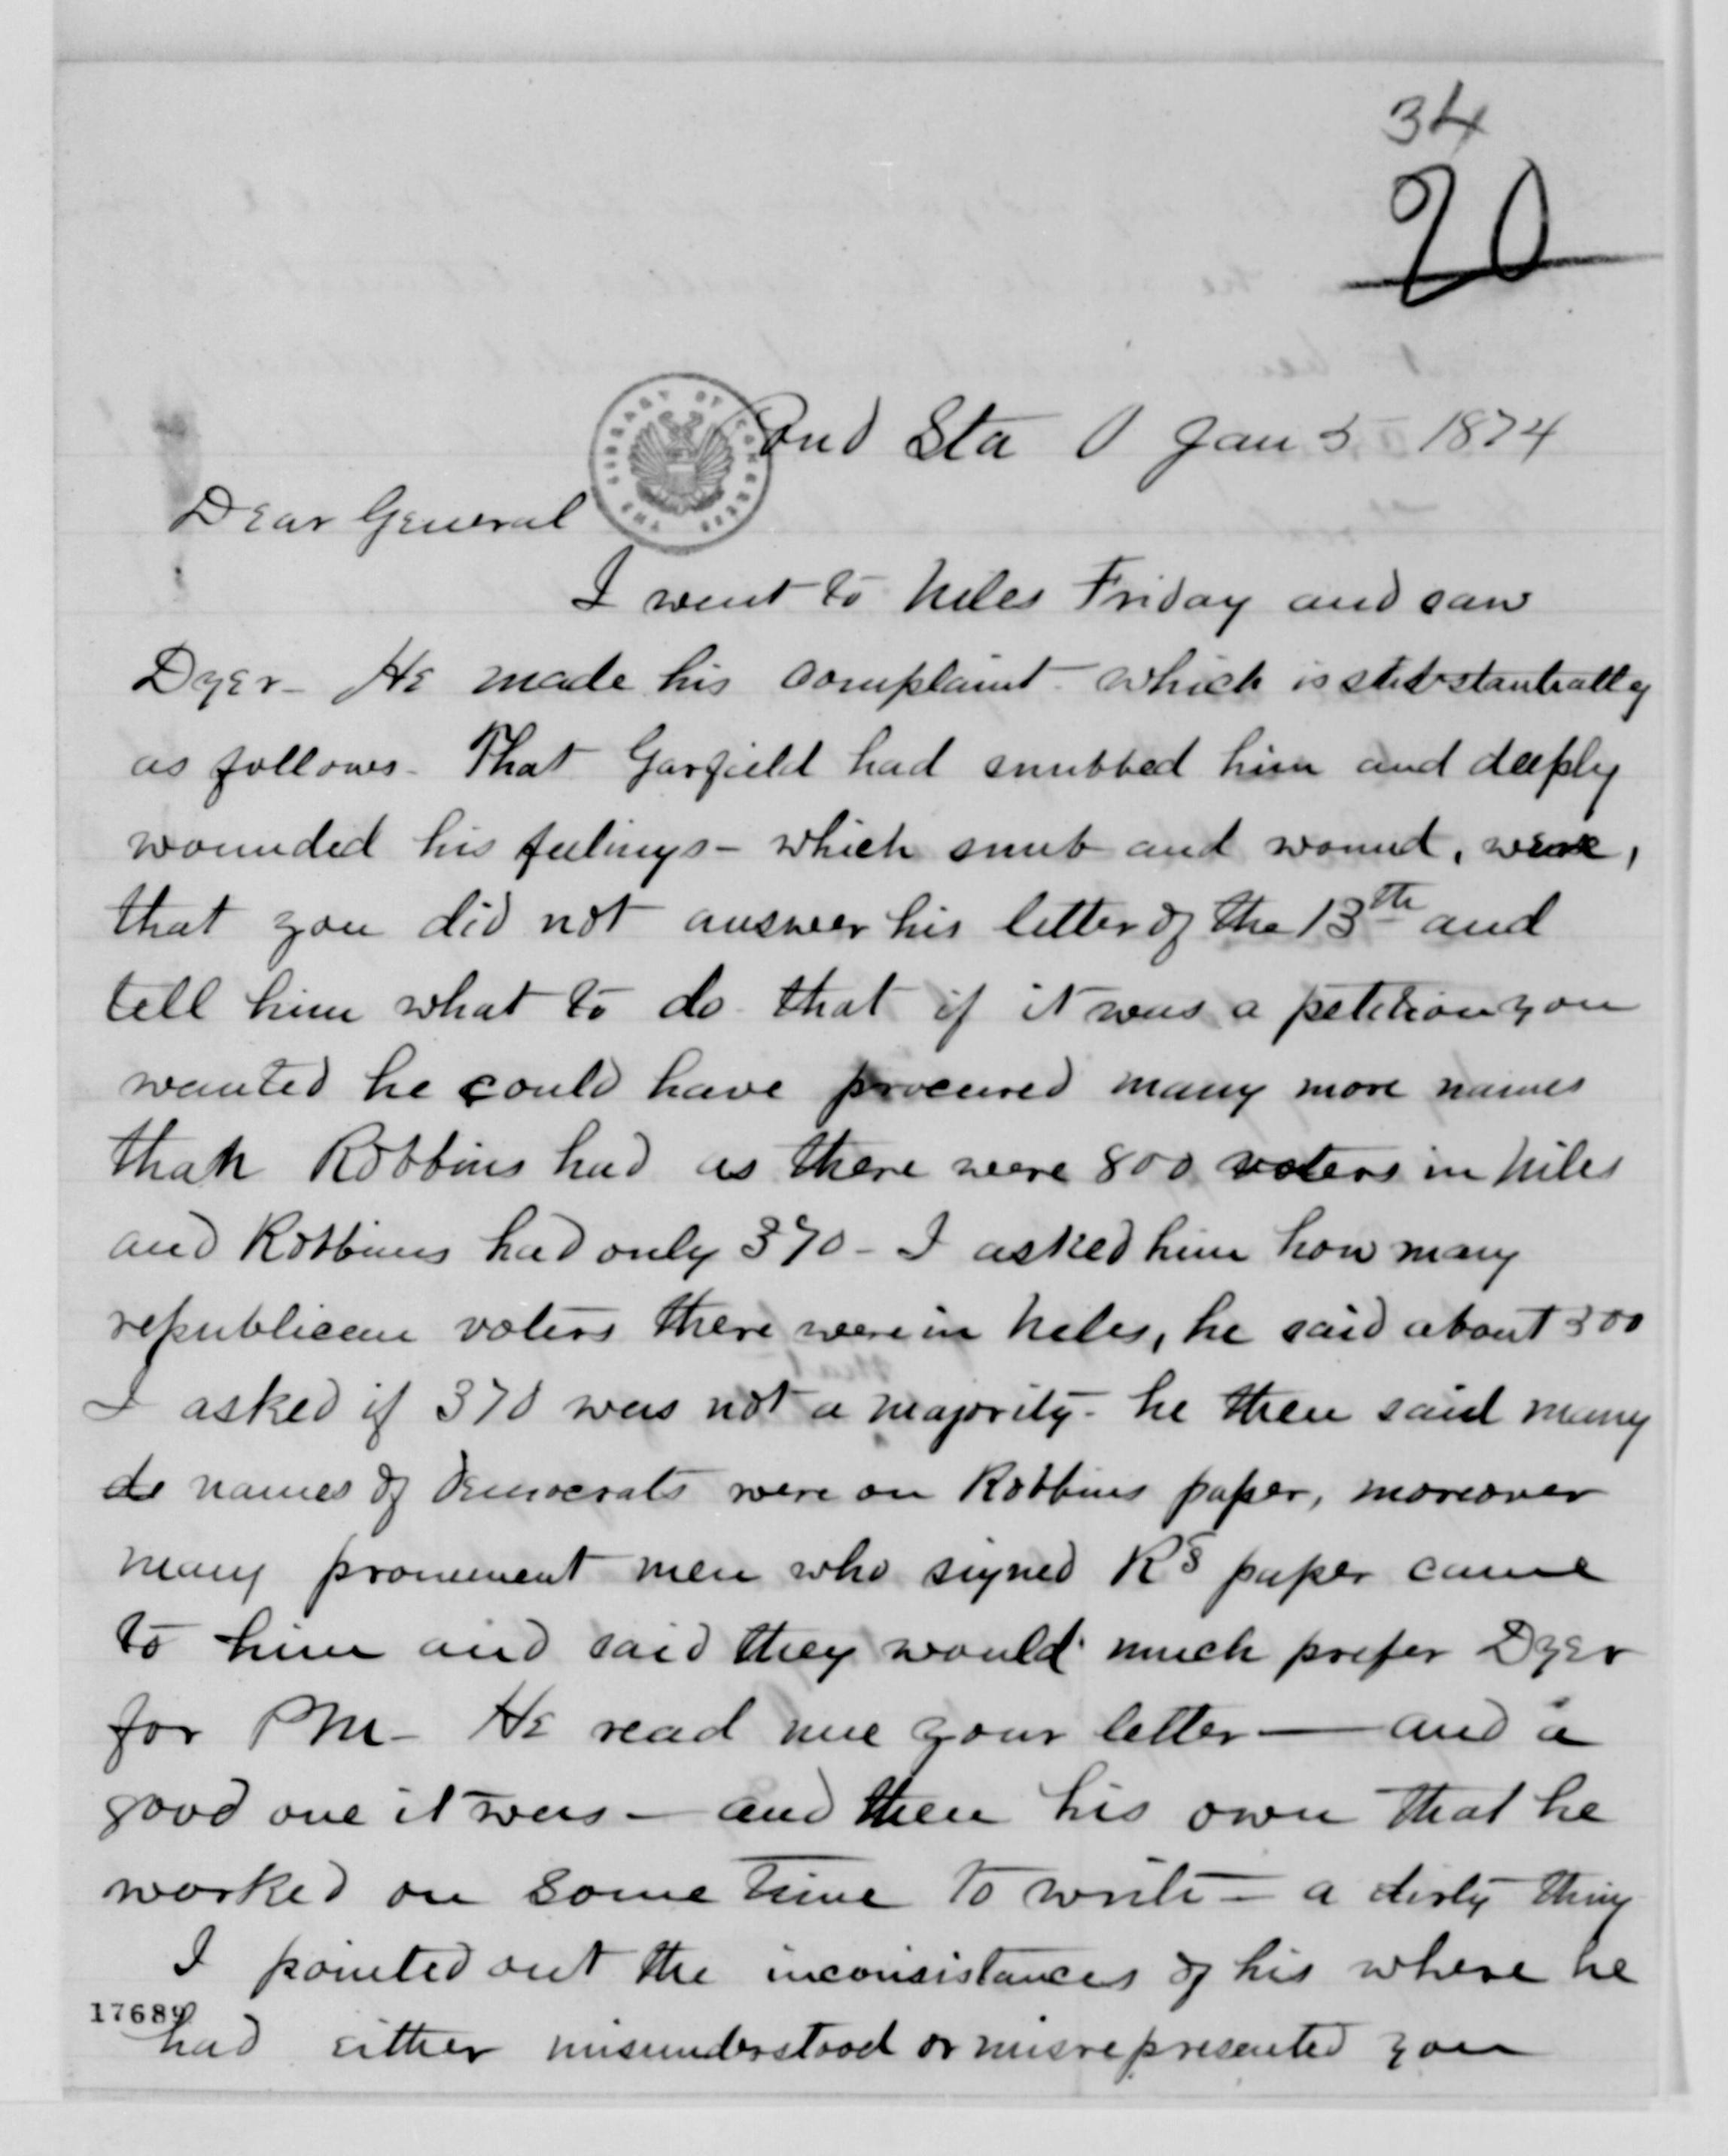 34
20
Pond Sta O Jan 5 1874
Dear General
I went to Niles Friday and saw
Dyer - He made his complaint - which is substantially
as follows - That Garfield had snubbed him and deeply
wounded his feelings - which snub and wound, were,
that you did not answer his letter of the 13th and
tell him what to do - that if it was a petition you
wanted he could have procured many more names
than Robbins had as there were 800 voters in Niles
and Robbins had only 370 - I asked him how many
republican voters there were in Niles, he said about 300
I asked if 370 was not a majority - he then said many
de names of Democrats were on Robbins paper, moreover
many prominent men who signed Rs paper came
to him and said they would much prefer Dyer
for PM - He read me your letter — and a
good one it was - and then his own that he
worked on some time to write - a dirty thing
I pointed out the inconsistances of his where he
17689
had either misunderstood or misrepresented you